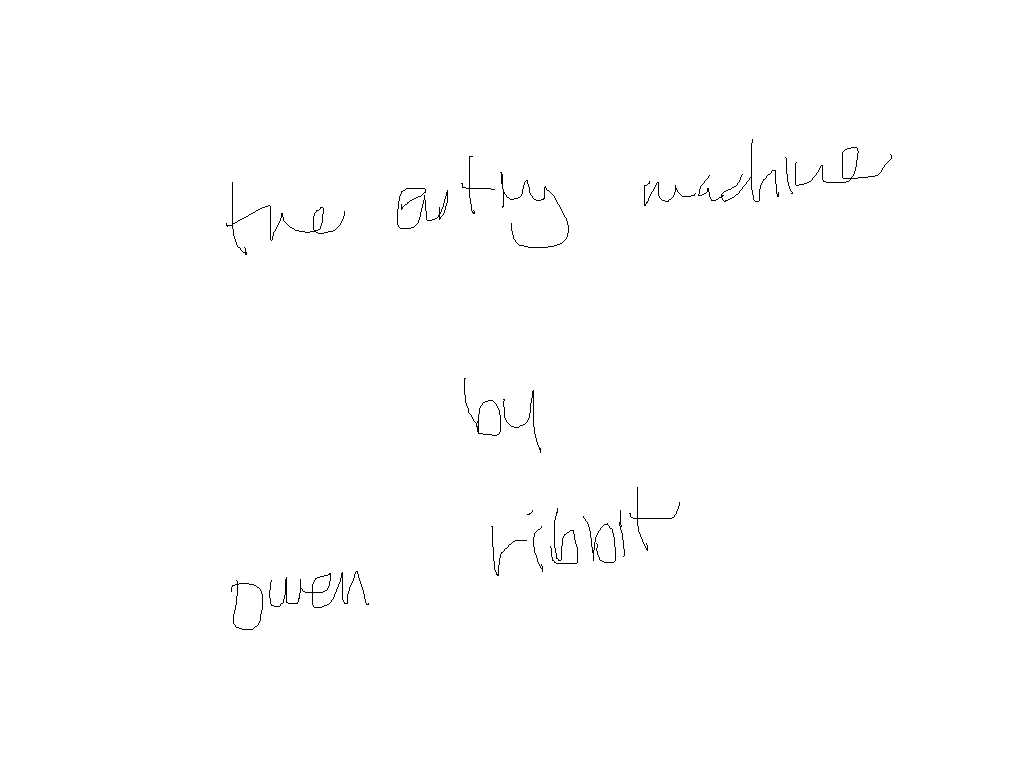 the artry machine
by
owen ribbit